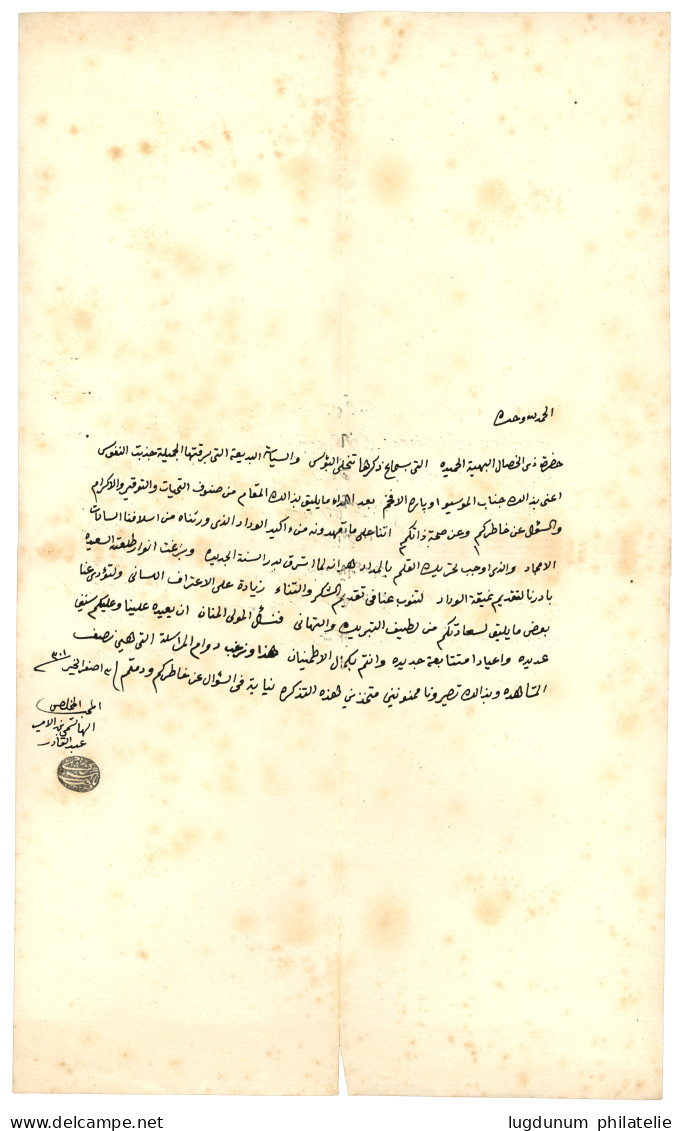 الحمد لله وحده
حضرة ذى الخصال البهية الحميده التى بسماع ذكرها تنجلى البؤس والسياسة البديعة التى برقتها الجميلة جذبت النفوس
اعنى بذالك جناب الموسيو اوياره الافخم بعد اهداء ما يليق بذالك المقام من صنوف التحيات والتوقير والاكرام
والسؤال عن خاطركم وعن صحة ذاتكم اننا على ما تعهدونه من اكيد الوداد الذى ورثناه من اسلافنا السادات
الامجاد والذى اوجب تحريك القلم بالمداد هو انه لما اشرق بدر السنة الجديده وبزغت انوار طلعته السعيده
بادرنا لتقديم نميقة الوداد لتنوب عنا فى تقديم الشكر والثناء زيادة على الاعتراف اللسانى ولتؤدى عنا
بعض ما يليق لسعادتكم من لطيف التبريك والتهانى فنسئل المولى المنان ان يعيده علينا وعليكم سنين
عديده واعيادا متتابعة جديده وانتم بكمال الاطمينان هذا ونرغب دوام المراسلة التى هى نصف
المشاهده وبذالك تصيرونا ممنونين متخذين هذه التذكرة نيابة فى السؤال عن خاطركم ودمتم صفر الخير ٣٠١
المحب المخلص
الهاشمى بن الامير
عبد القادر
www.delcampe.net
lugdunum philatelie